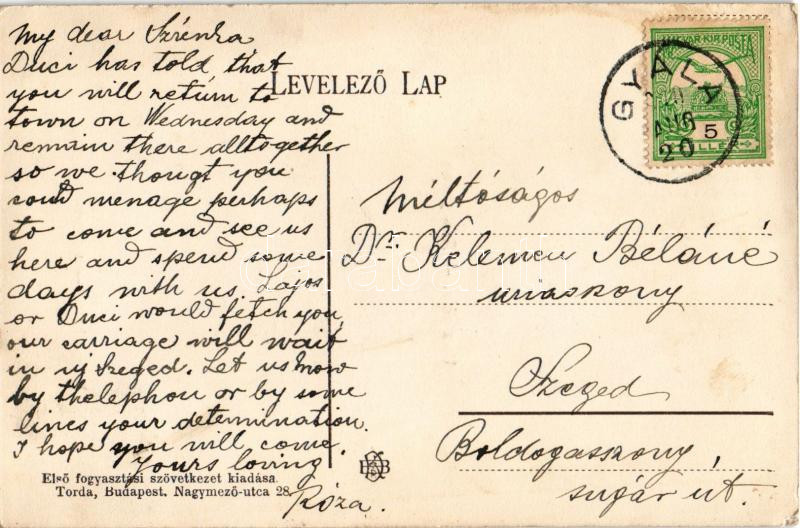 My dear Szrénka
Duci has told that
you will return to
town on Wednesday and
remain there alltogether
so we thougt you
could menage perhaps
to come and see us
here and spend some
days with us. Lajos
or Duci would fetch you,
our carriage will wait
in uj Szeged. Let us know
by thelephon or by some
lines your detemination.
I hope you will come.
Yours loving
Róza.
LEVELEZŐ LAP
MAGYAR KIR. POSTA
5
GYÁLA
AUG
20
Méltóságos
Dr. Kelemen Béláné
urasszony
Szeged
Boldogasszony,
sugár út.
Első fogyasztási szövetkezet kiadása
Torda, Budapest, Nagymező-utca 28.